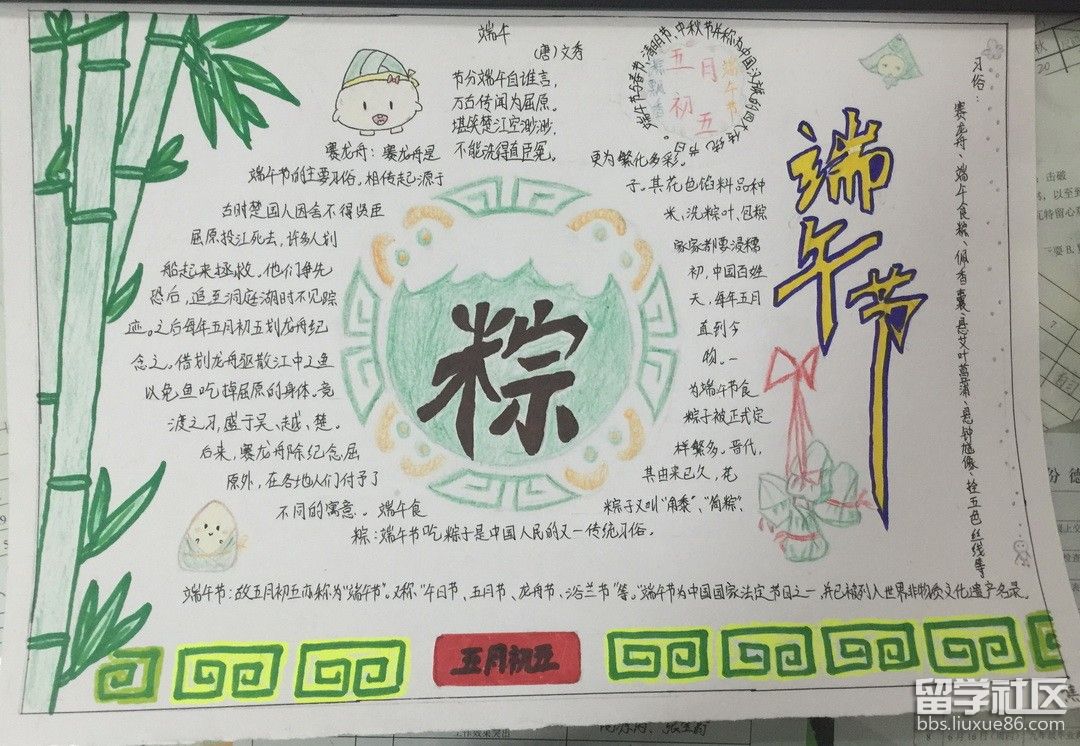 端午
(唐)文秀
节分端午自谁言,
万古传闻为屈原。
堪笑楚江空渺渺,
不能洗得直臣冤。
端午节与春节、清明节、中秋节并称为中国汉族的四大传统节日。
五月
初五
端午节
粽飘香
端午节
习俗:赛龙舟、端午食粽、佩香囊、悬艾叶菖蒲、悬钟馗像、拴五色丝线等
赛龙舟:赛龙舟是
端午节的主要习俗。相传起源于
古时楚国人因舍不得贤臣
屈原投江死去,许多人划
船起来拯救。他们争先
恐后,追至洞庭湖时不见踪
迹。之后每年五月初五划龙舟纪
念之。借划龙舟驱散江中之鱼
以免鱼吃掉屈原的身体。竞
渡之习,盛于吴、越、楚。
后来,赛龙舟除纪念屈
原外,在各地人们付予了
不同的寓意。 端午食
粽:端午节吃粽子是中国人民的又一传统习俗。
粽子又叫“角黍”、“筒粽”、
其由来已久,花
样繁多。晋代,
粽子被正式定
为端午节食
物。一
直到今
天,每年五月
初,中国百姓
家家都要浸糯
米、洗粽叶、包粽
子。其花色馅料品种
更为繁化多彩。
粽
端午节:故五月初五亦称为“端午节”。又称“午日节、五月节、龙舟节、浴兰节”等。“端午节为中国国家法定节日之一,并已被列入世界非物质文化遗产名录。
五月初五
留学社区
bbs.liuxue86.com